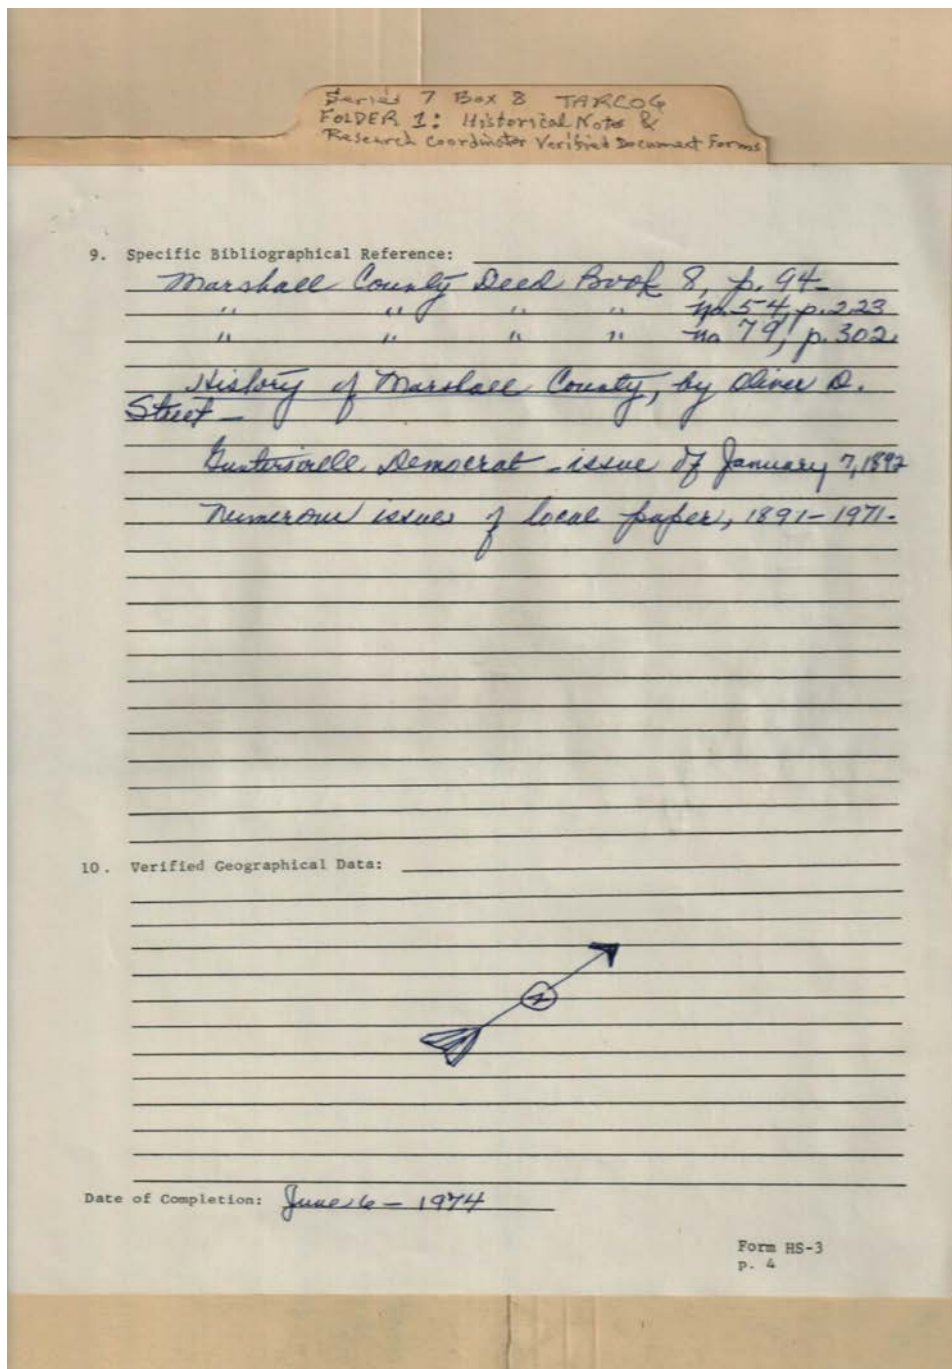 Series 7 Box 8 TARCOG
FOLDER 1: Historical Notes &
Research Coordinator Verified Document Forms
9. Specific Bibliographical Reference:
Marshall County Deed Book 8, p. 94-
" " " " no. 54, p. 223
" " " " no 79, p. 302
History of Marshall County, by Oliver D.
Street -
Guntersville Democrat - issue of January 7, 1892
Numerous issues of local paper, 1891-1971-
10. Verified Geographical Data:
N
Date of Completion: June 6 - 1974
Form HS-3
p. 4